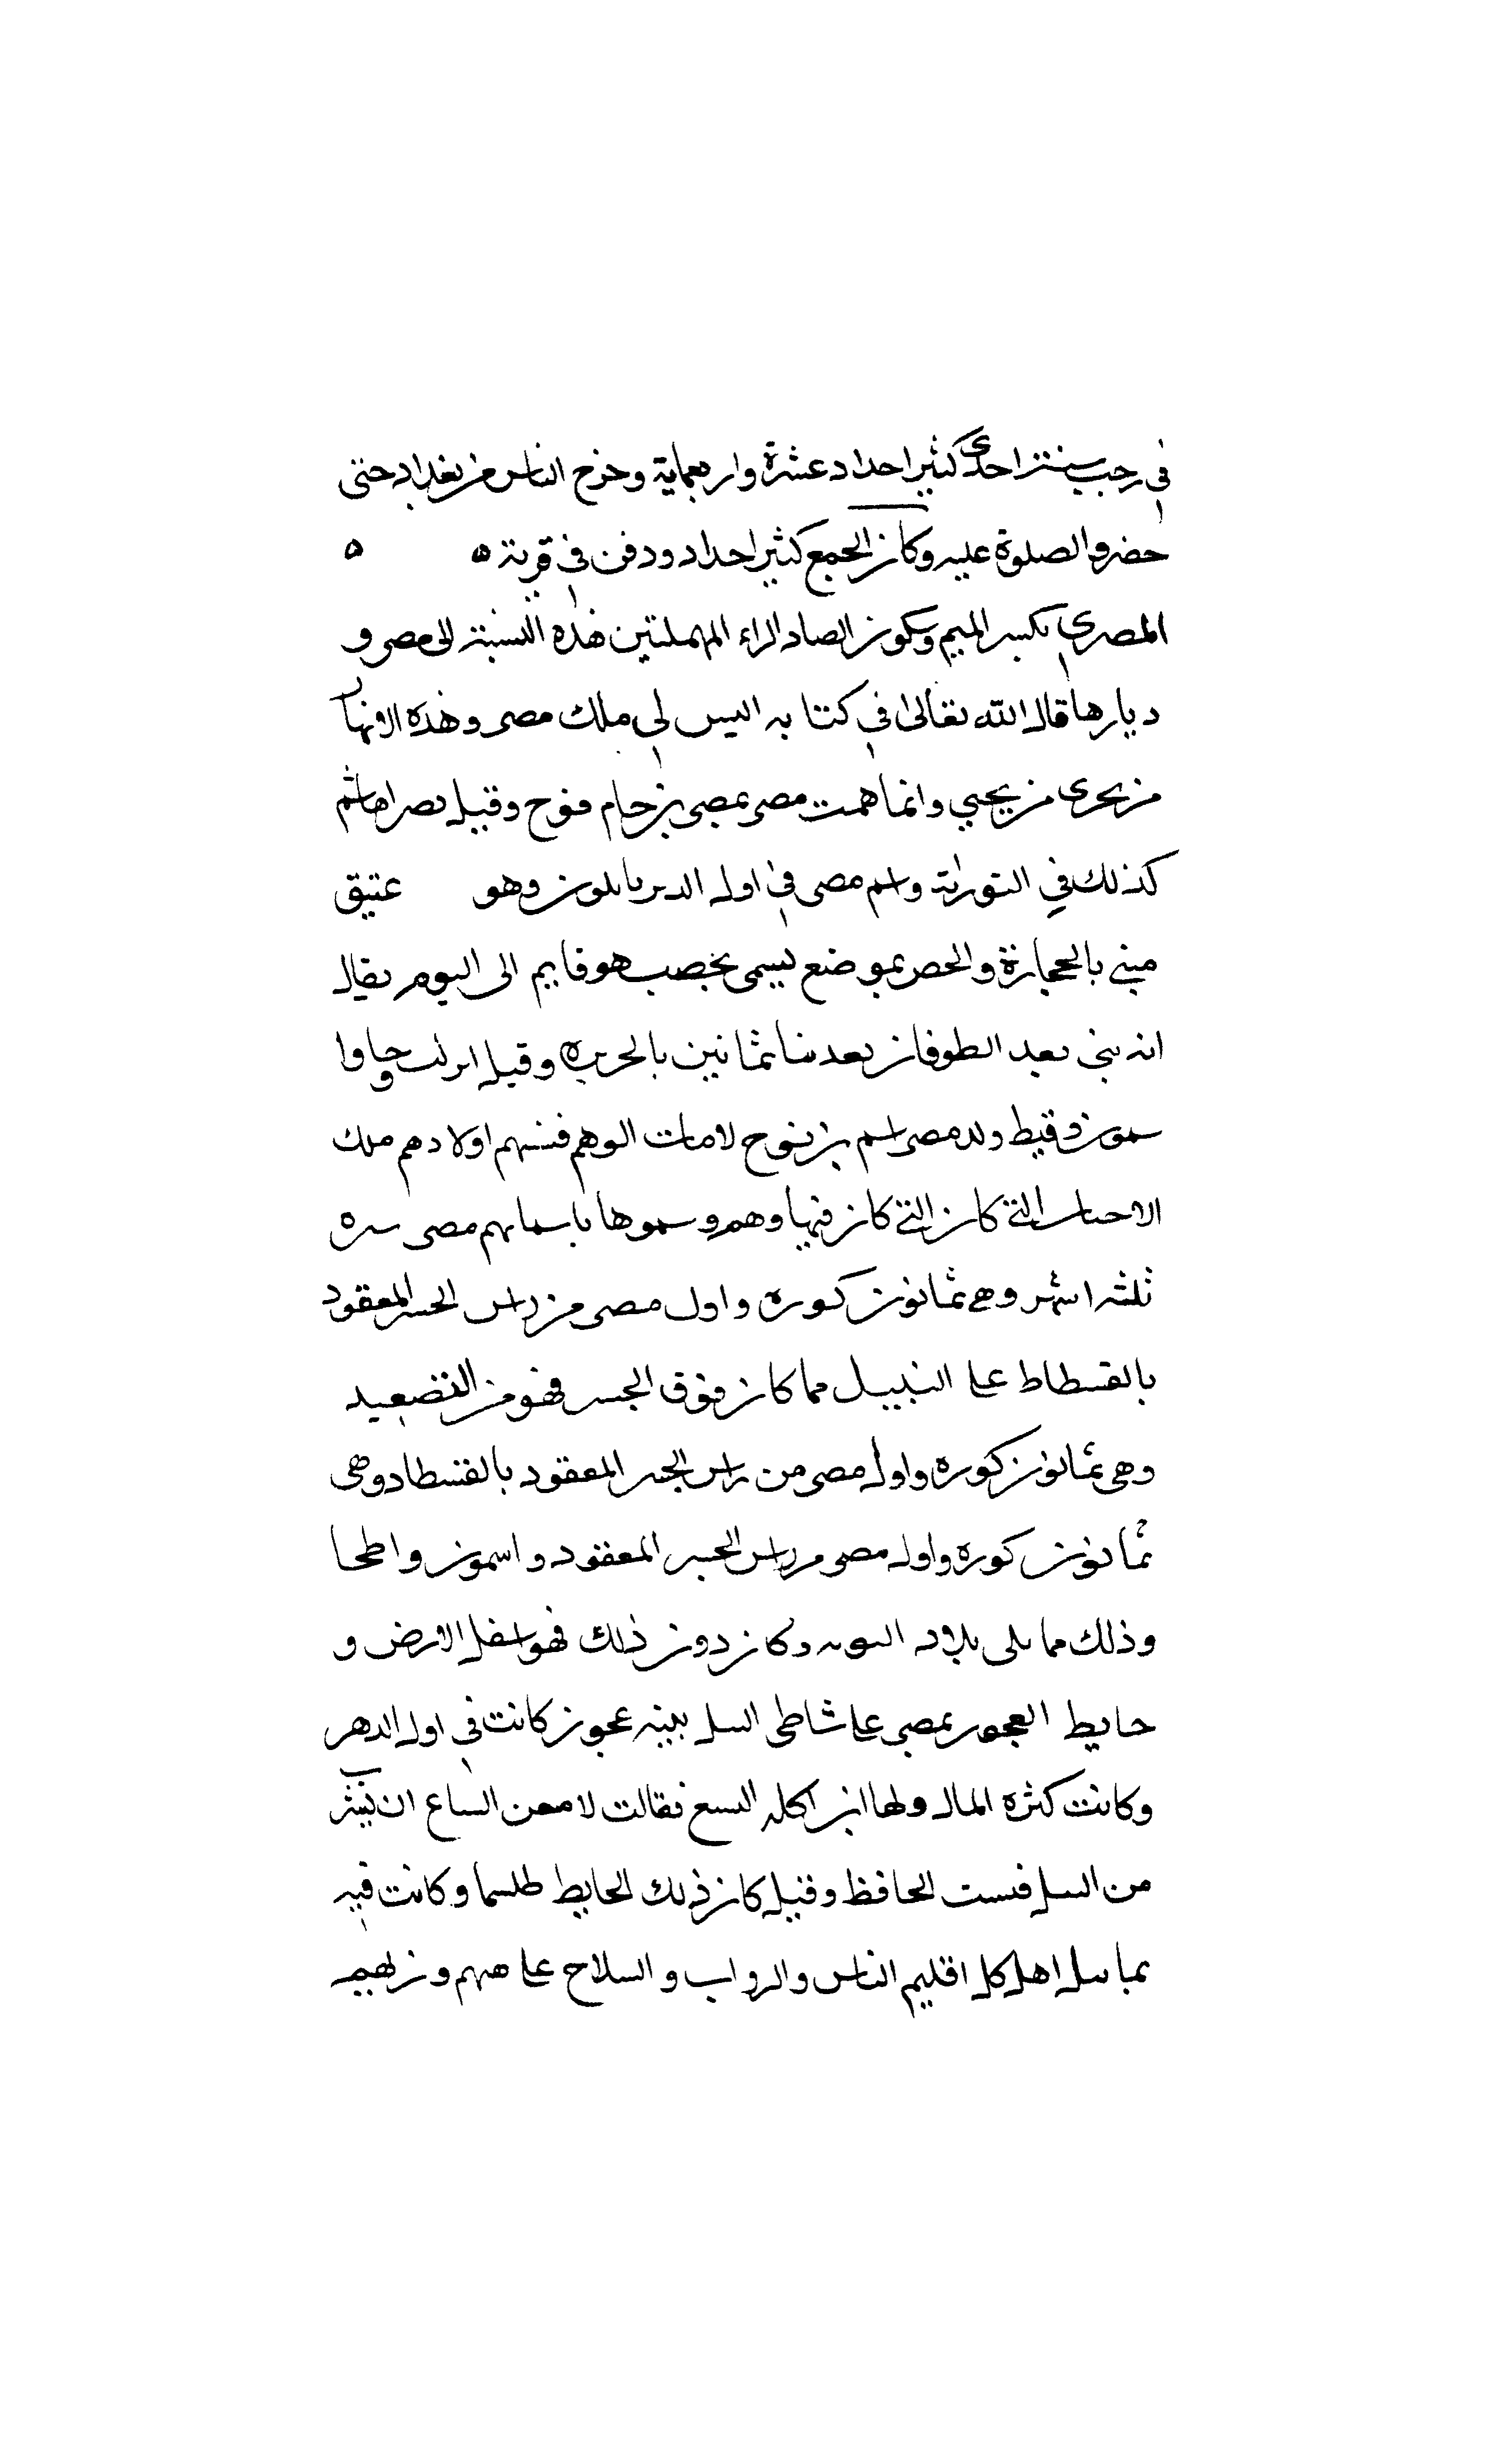 في رجب سنة احدى كثيرا حدا دعشرة واربعماية وخرج الناس من بغداد حتى
حضروا لصلوة عليه وكان الجمع كثير احدا د ودفن في قريته ه ه
المصري بكسر الميم وسكون الصاد الراء المهملتين هذه النسبة الى مصر و
ديارها قال الله تعالى في كتابه اليس لي ملك مصر وهذه الانهار
من يحرى من يحيي وانما همت مصر بمصر بن حام فوح وقيل مصراهاشم
كذلك في التوراية واسم مصر في اول الدير بابلون وهو عتيق
مبني بالحجارة والحصر بموضع يسمى بخصب هو قايم الى اليوم يقال
انه بني بعد الطوفان بعد بنا ثمانين بالحريره وقيل
سمون وقبط ولد مصر اسم بن نوح لامات الوهم فسهم اولادهم ملك
التي كان التي كان فيها وهم وسموها باسمايهم مصر سره
ثلثه اشهر وهي ثمانون كوره واول مصر من راس الجسر المعقود
بالفسطاط على النبيل مما كان فوق الجسر فهو من التضعيد
وهي ثمانون كوره واول مصر من راس الجسر المعقود بالفسطاد وهي
ثمانون كوره واول مصر من راس الجسر المعقود واسمون واطحا
وذلك مما يلى بلاد النوبه وكان دون ذلك فهو اسفل الارض و
حايط العجوز بمصر على شاطى النيل بنيته عجوز كانت في اول الدهر
وكانت كثره المال ولها ابن اكله السبع فقالت لا معن السباع ان تشر
من النيل فبنت الحافظ وقيل كان ذلك الحايط طلسما وكانت فيه
بماثيل اهل كل اقليم الناس والرواب والسلاح على هيهم وزيهم